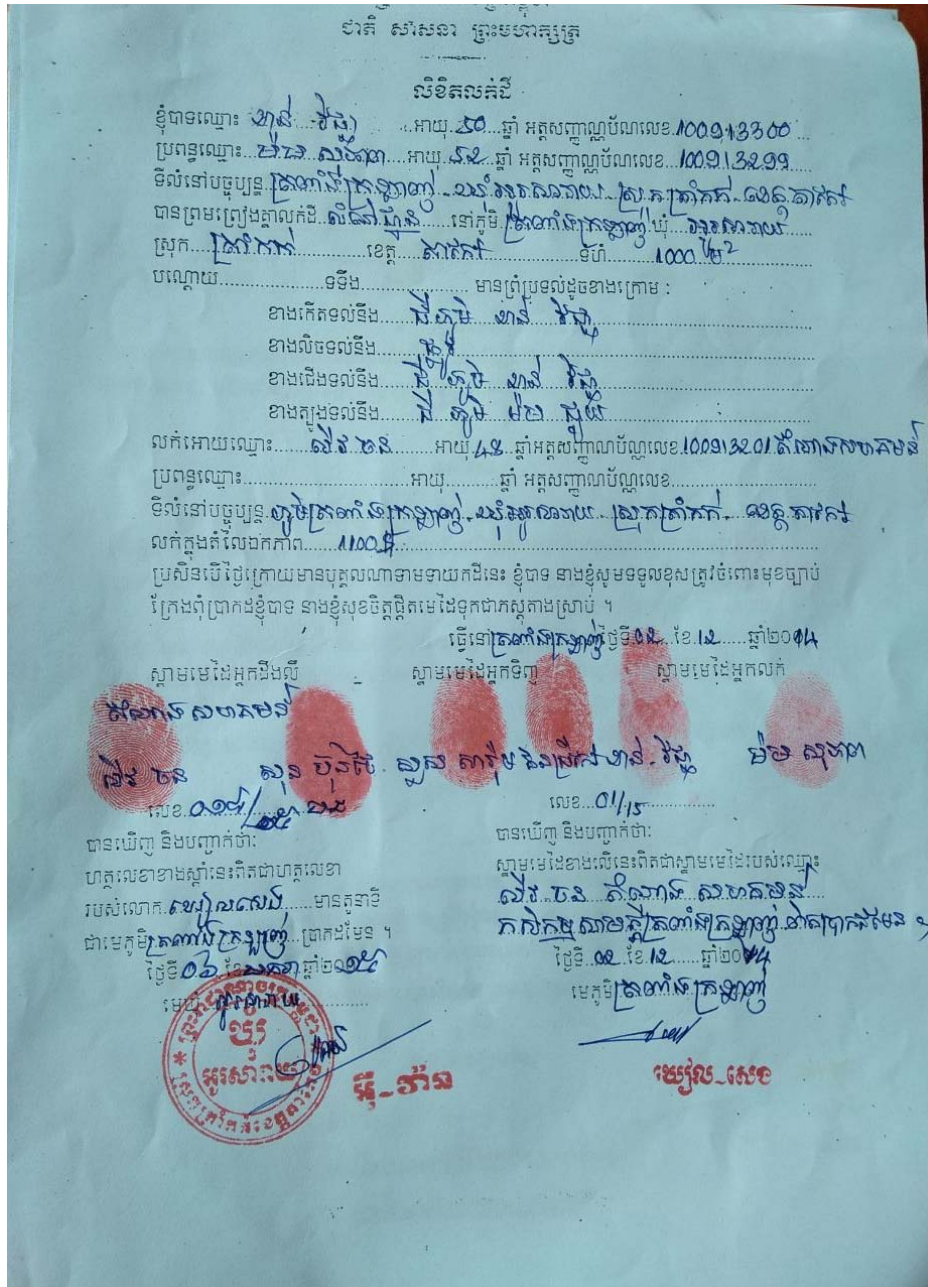 ជាតិ សាសនា ព្រះមហាក្សត្រ
លិខិតលក់ដី
ខ្ញុំបាទឈ្មោះ ខាន់ វិជ្ជា អាយុ 50 ឆ្នាំ អត្តសញ្ញាណប័ណលេខ 100913300
ប្រពន្ធឈ្មោះ ម៉ម សុផាត អាយុ ៤៨ ឆ្នាំ អត្តសញ្ញាណប័ណលេខ 100913299
ទីលំនៅបច្ចុប្បន្ន ត្រពាំងក្រឡាញ់ ឃុំអូរសារាយ ស្រុកត្រាំកក់ ខេត្តតាកែវ
បានព្រមព្រៀងគ្នាលក់ដី នៅភូមិ ត្រពាំងក្រឡាញ់ ឃុំ អូរសារាយ
ស្រុក ត្រាំកក់ ខេត្ត តាកែវ ទំហំ 1000 ម2
បណ្តោយ ទទឹង មានព្រំប្រទល់ដូចខាងក្រោម :
ខាងកើតទល់នឹង ដីភូមិ ខាន់ វិជ្ជា
ខាងលិចទល់នឹង ផ្លូវ
ខាងជើងទល់នឹង ដី ភូមិ ខាន់ វិជ្ជា
ខាងត្បូងទល់នឹង ដី ភូមិ ម៉ម
លក់អោយឈ្មោះ ចន អាយុ ឆ្នាំអត្តសញ្ញាណប័ណ្ណលេខ 100913201 តំណាងសហគមន៍
ប្រពន្ធឈ្មោះ អាយុ ឆ្នាំ អត្តសញ្ញាណប័ណ្ណលេខ
ទីលំនៅបច្ចុប្បន្ន ភូមិត្រពាំងក្រឡាញ់ ឃុំអូរសារាយ ស្រុកត្រាំកក់ ខេត្តតាកែវ
លក់ក្នុងតំលៃឯកភាព 1100$
ប្រសិនបើថ្ងៃក្រោយមានបុគ្គលណាទាមទាយកដីនេះ ខ្ញុំបាទ នាងខ្ញុំសូមទទួលខុសត្រូវចំពោះមុខច្បាប់
ក្រែងពុំប្រាកដខ្ញុំបាទ នាងខ្ញុំសុខចិត្តផ្តិតមេដៃទុកជាភស្តុតាងស្រាប់ ។
ធ្វើនៅត្រពាំងក្រឡាញ់ ថ្ងៃទី 02 ខែ 12 ឆ្នាំ២០14
ស្នាមមេដៃអ្នកដឹងលឺ ស្នាមមេដៃអ្នកទិញ ស្នាមមេដៃអ្នកលក់
តំណាង សហគមន៍
ចន សុន សារ៉ុម ខាន់ វិជ្ជា ម៉ម សុផាត
លេខ លេខ 01/15
បានឃើញ និងបញ្ជាក់ថាៈ
ហត្ថលេខាខាងស្តាំនេះពិតជាហត្ថលេខា
របស់លោក ឃៀល សេង មានតួនាទី
ជាមេភូមិ ត្រពាំងក្រឡាញ់ ប្រាកដមែន ។
ថ្ងៃទី 06 ខែ មករា ឆ្នាំ២០១៥
មេឃុំ អូរសារាយ
ឃុំ
អូរសារាយ
អ៊ុ-វ៉ាន
បានឃើញ និងបញ្ជាក់ថាៈ
ស្នាមមេដៃខាងលើនេះពិតជាស្នាមមេដៃរបស់ឈ្មោះ
ចន តំណាង សហគមន៍
កសិកម្ម សាមគ្គីត្រពាំងក្រឡាញ់ ពិតប្រាកដមែន ។
ថ្ងៃទី 02 ខែ 12 ឆ្នាំ២០14
មេភូមិ ត្រពាំងក្រឡាញ់
ឃៀល-សេង